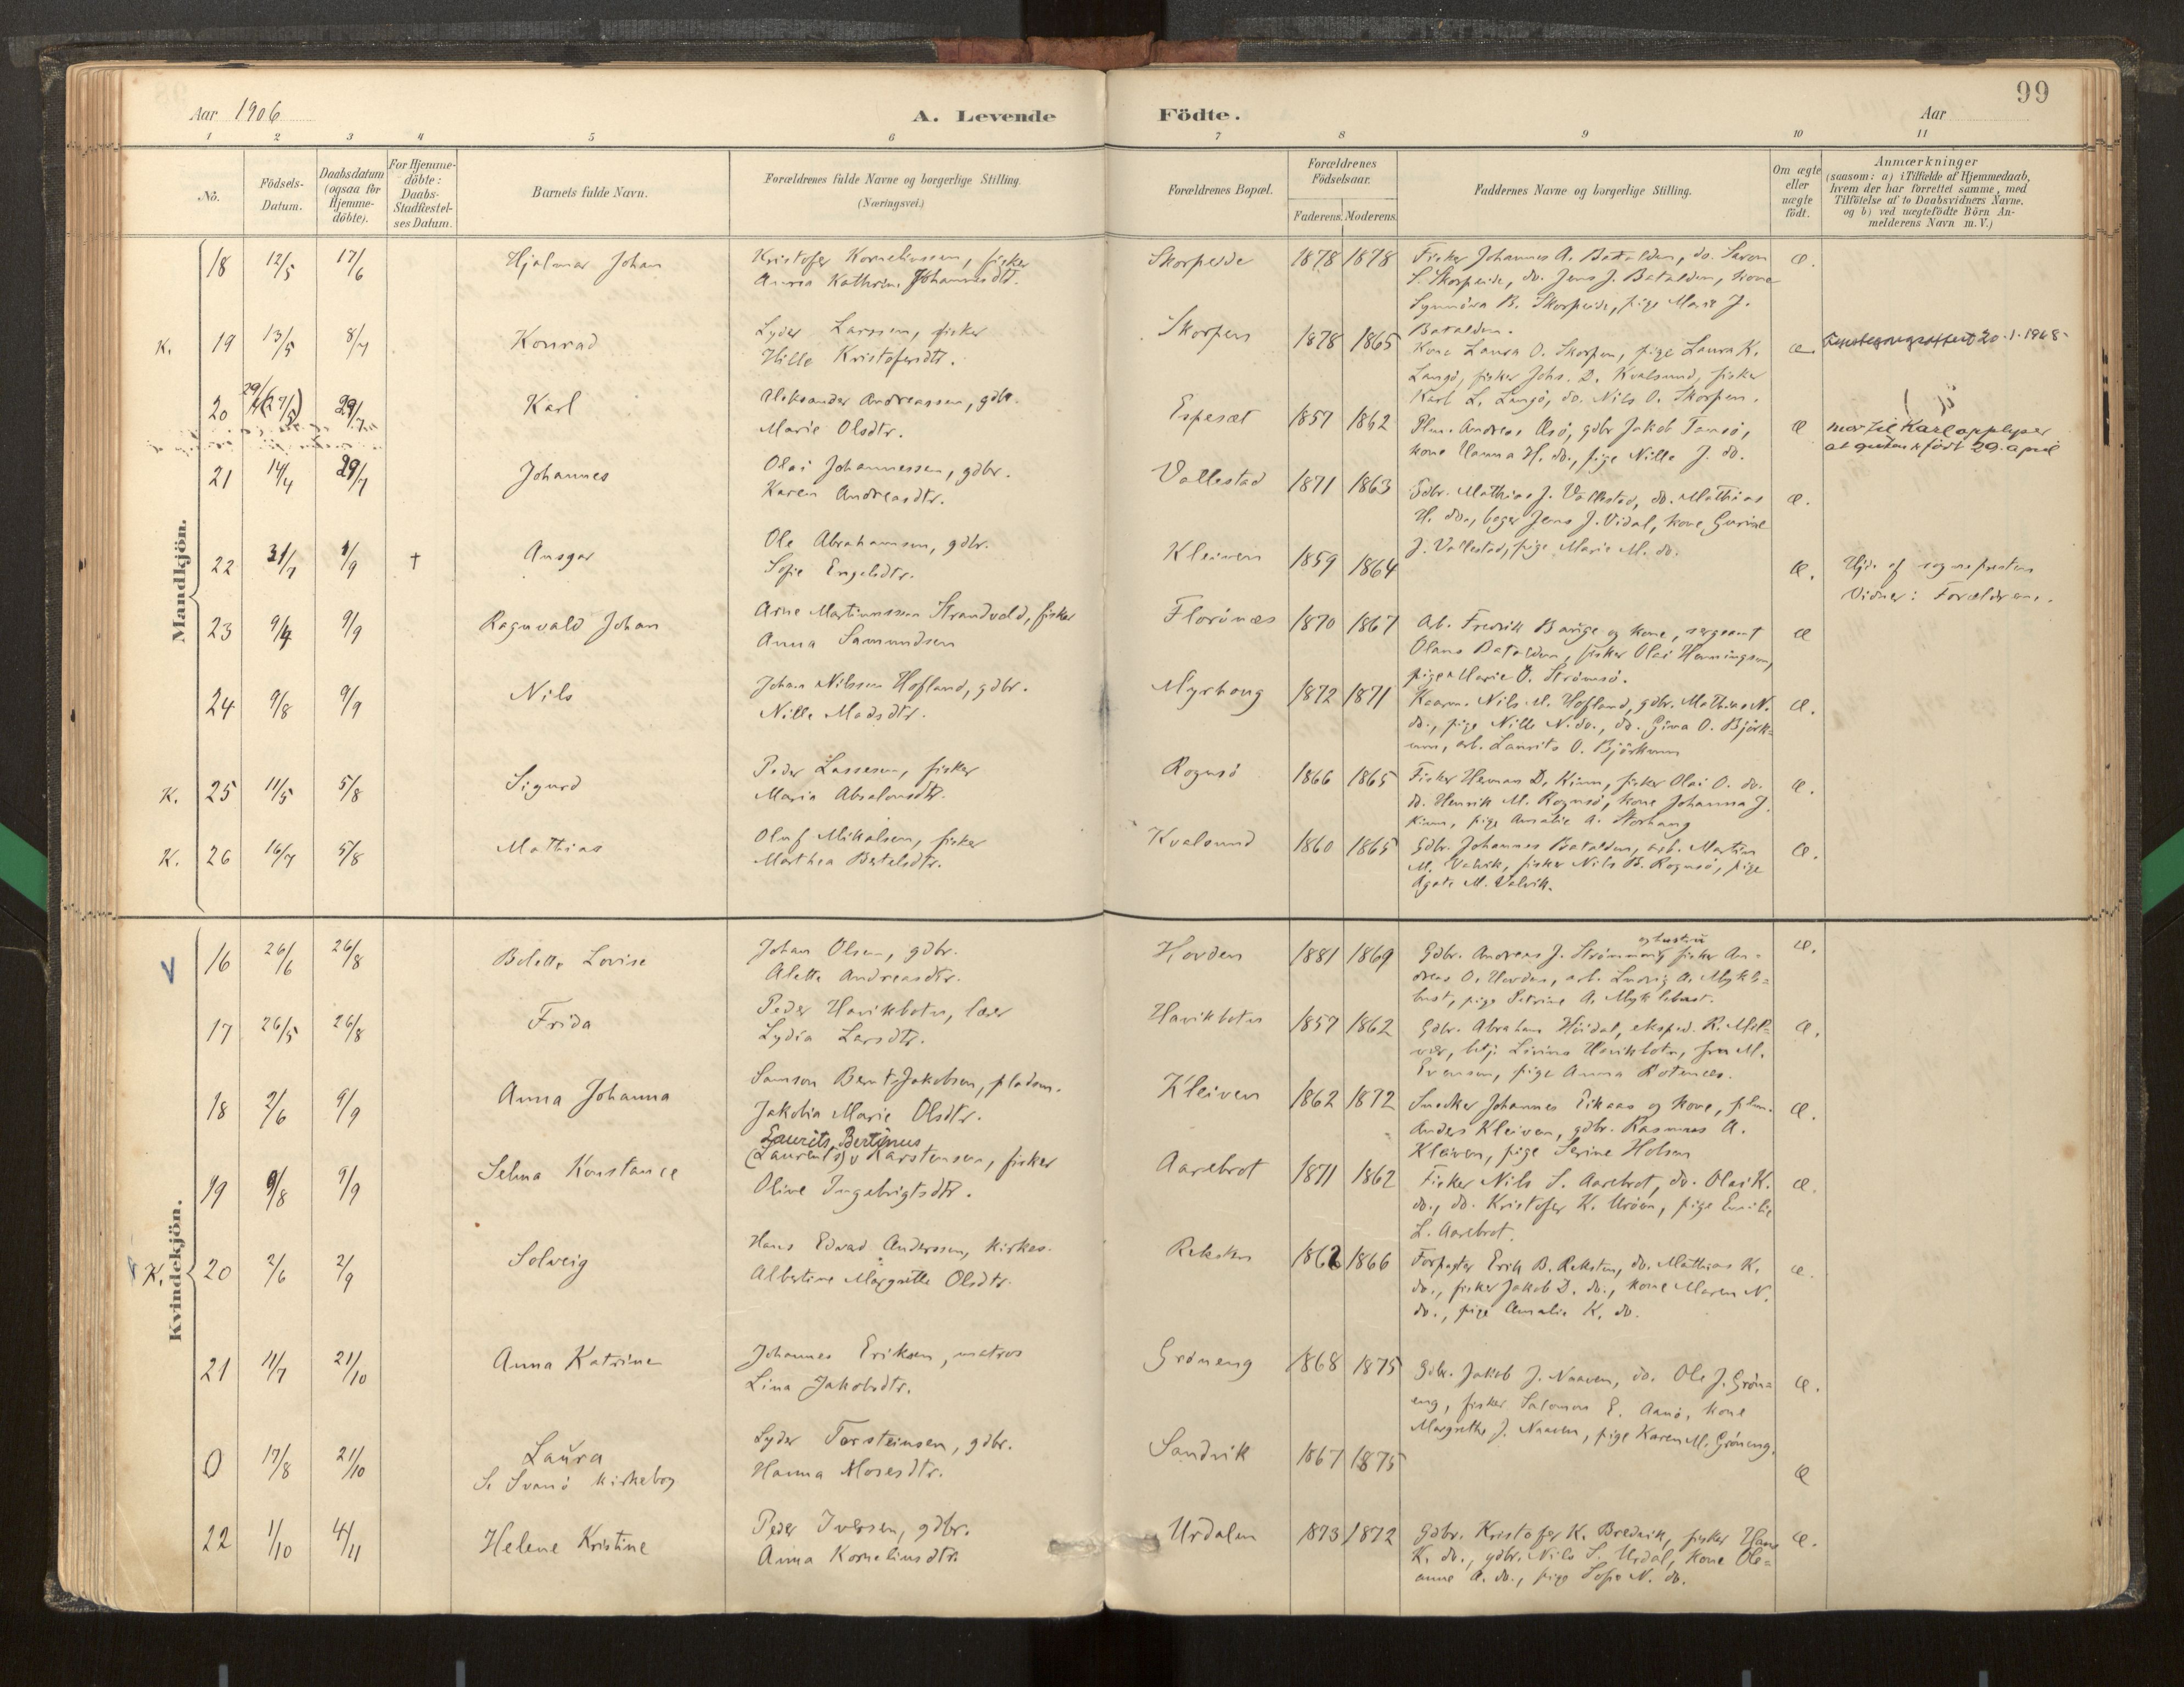 99
Aar 1906
A. Levende Födte.
Aar
1 2 3 4 5 6 7 8 9 10 11
No.
Födsels-Datum.
Daabsdatum (ogsaa for Hjemme-döbte).
For Hjemme-döbte: Daabs-Stadfæstel-ses Datum.
Barnets fulde Navn.
Forældrenes fulde Navne og borgerlige Stilling.
(Næringsvei.)
Forældrenes Bopæl.
Forældrenes Födselsaar.
Faderens. Moderens.
Faddernes Navne og borgerlige Stilling.
Om ægte eller uægte födt.
Anmærkninger
(saasom: a) i Tilfælde af Hjemmedaab,
hvem der har forrettet samme, med
Tilföielse af to Daabsvidners Navne,
og b) ved uægtefödte Börn An-
melderens Navn m.V.)
Mandkjön.
18 12/5 17/6 Hjalmar Johan
Kristofer Korneliussen, fisker
Anna Kathrine Johannesdtr.
Skorpeide 1878 1878
Fisker Johannes A. Batalden, do. Saron
S. Skorpeide, do. Jens J. Batalden, kone
Synnöva B. Skorpeide, pige Marie J.
Batalden.
æ.
K. 19 13/5 8/7 Konrad
Lyder Larssen, fisker
Hille Kristofersdtr.
Skorpen 1878 1865
Kone Laura O. Skorpen, pige Laura K.
Langö, fisker Johs. D. Kvalsund, fisker
Karl L. Langö, do. Nils O. Skorpen.
æ. 20.1.1968
20 29/4 (27/5) 29/7 Karl
Aleksander Andreassen, gdbr.
Marie Olsdtr.
Espeset 1857 1862
Plm. Andreas Asö, gdbr Jakob Tansö,
kone Hanna H. do., pige Nille J. do.
æ
mor til Karl opplyser
at gutten er født 29. april
21 14/4 29/7 Johannes
Olai Johannessen, gdbr.
Karen Andreasdtr.
Vallestad 1871 1863
Gdbr. Mathias J. Vallestad, do. Mathias
H. do., Jens J. Vidal, kone Gurine
J. Vallestad, pige Marie M. do.
æ.
22 31/7 1/9 † Ansgar
Ole Abrahamsen, gdbr.
Sofie Engelsdtr.
Kleiven 1859 1864
æ.
Hjd. af sognepresten
Vidner: Forældrene.
23 9/4 9/9 Ragnvald Johan
Arne Martinussen Strandvold, fisker
Anna Samundsen
Florönæs 1870 1867
Arb. Fredrik Barige og kone, sergeant
Olans Batalden, fisker Olai Henningsen,
pige Marie O. Strömsö.
æ
24 9/8 9/9 Nils
Johan Nilssen Hofland, gdbr.
Nille Madsdtr.
Myrhaug 1872 1871
Kaarm. Nils M. Hofland, gdbr. Mathias N.
do., pige Nille N. do., do. Gina O. Björk-
um, arb. Laurits O. Björkum
æ.
K. 25 11/5 5/8 Sigurd
Peder Lassesen, fisker
Maria Absalonsdtr.
Rognsö 1866 1865
Fisker Herman D. Kinn, fisker Olai O. do.
do. Henrik M. Rognsö, kone Johanna J.
Kinn, pige Amalie A. Storhaug
æ.
K. 26 16/7 5/8 Mathias
Oluf Mikalsen, fisker
Marthea Bertelsdtr.
Kvalsund 1860 1865
Gdbr. Johannes Batalden, arb. Martin
M. Valvik, fisker Nils B. Rognsö, pige
Agate M. Valvik.
æ.
Kvindekjön.
V 16 26/6 26/8 Bolette Lovise
Johan Olsen, gdbr.
Alette Andreasdtr.
Hovden 1881 1869
og hustru
Gdbr. Andreas J. Strömmen, fisker An-
dreas O. Hovden, arb. Ludvig A. Mykle-
bust, pige Petrine A. Myklebust.
æ.
17 26/5 26/8 Frida
Peder Havikbotn, lærer
Lydia Larsdtr.
Havikbotn 1857 1862
Gdbr. Abraham Höidal, eksped. R. Mel-
vær, betj. Livius Havikbotn, fru M.
Evensen, pige Anna Rotences.
æ.
18 2/6 9/9 Anna Johanna
Samson Bernt Jakobsen, pladsm.
Jakobia Marie Olsdtr.
Kleiven 1862 1872
Snedker Johannes Eikaas og kone, plm.
Anders Kleiven, gdbr. Rasmus A.
Kleiven, pige Serine Holsen
æ.
19 9/8 9/9 Selma Konstance
Laurits Bertinus
(Laurents) v Karstensen, fisker
Olive Ingebrigtsdtr.
Aarebrot 1871 1862
Fisker Nils S. Aarebrot, do. Olai K.
do., do. Kristofer K. Uröen, pige Emilie
L. Aarebrot.
æ.
K. 20 2/6 2/9 Solveig
Hans Edvard Anderssen, kirkes.
Albertine Margrethe Olsdtr.
Reksten 1862 1866
Forpagter Erik B. Reksten, do. Mathias K.
do., fisker Jakob D. do., kone Maren N.
do., pige Amalie K. do.
æ.
21 11/7 21/10 Anna Katrine
Johannes Eriksen, matros
Lina Jakobsdtr.
Gröneng 1868 1875
Gdbr. Jakob J. Naaven, do. Ole J. Grön-
eng, fisker Salomon E. Aanö, kone
Margrethe J. Naaven, pige Karen M. Gröneng.
æ.
0 17/8 21/10 Laura
S. Svanö kirkebog
Lyder Torsteinsen, gdbr.
Hanna Mosesdtr.
Sandvik 1867 1875
æ
22 1/10 4/11 Helene Kristine
Peder Iversen, gdbr.
Anna Korneliusdtr.
Urdalen 1873 1872
Gdbr. Kristofer K. Bredvik, fisker Hans
K. do., gdbr. Nils S. Urdal, kone Ole-
anne A. do., pige Sofie N. do.
æ.